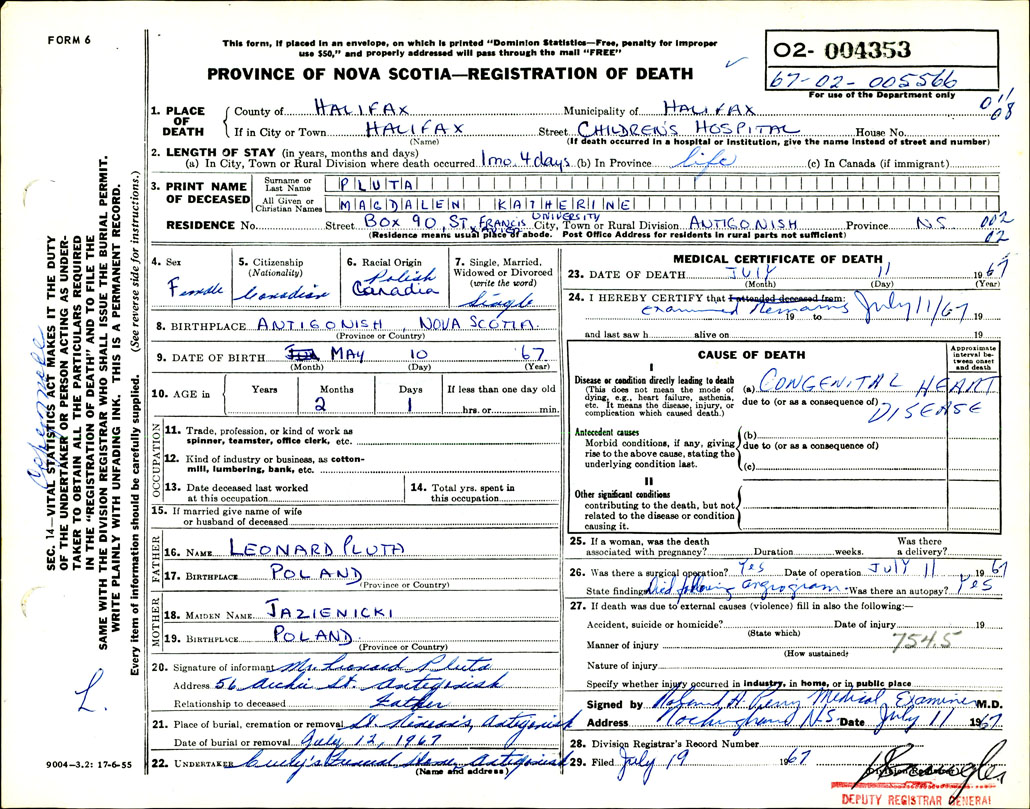 FORM 6
This form, if placed in an envelope, on which is printed "Dominion Statistics—Free, penalty for improper
use $50," and properly addressed will pass through the mail "FREE"
PROVINCE OF NOVA SCOTIA—REGISTRATION OF DEATH
02- 004353
67-02-005566
For use of the Department only
1. PLACE OF DEATH
County of HALIFAX Municipality of HALIFAX 011
08
If in City or Town HALIFAX Street CHILDREN'S HOSPITAL House No.
(Name) (If death occurred in a hospital or institution, give the name instead of street and number)
2. LENGTH OF STAY (in years, months and days)
(a) In City, Town or Rural Division where death occurred 1 mo. 4 days (b) In Province life (c) In Canada (if immigrant)
3. PRINT NAME OF DECEASED
Surname or Last Name PLUTA
All Given or Christian Names MAGDALEN KATHERINE
RESIDENCE No. Street BOX 90, ST. FRANCIS XAVIER UNIVERSITY City, Town or Rural Division ANTIGONISH Province N.S. 002
02
(Residence means usual place of abode. Post Office Address for residents in rural parts not sufficient)
4. Sex
Female
5. Citizenship
(Nationality)
Canadian
6. Racial Origin
Polish
Canadia
7. Single, Married, Widowed or Divorced
(write the word)
Single
8. BIRTHPLACE ANTIGONISH, NOVA SCOTIA.
(Province or Country)
9. DATE OF BIRTH MAY 10 '67
(Month) (Day) (Year)
10. AGE in
Years Months Days If less than one day old
2 1 hrs. or min.
OCCUPATION
11. Trade, profession, or kind of work as
spinner, teamster, office clerk, etc.
12. Kind of industry or business, as cotton-
mill, lumbering, bank, etc.
13. Date deceased last worked
at this occupation
14. Total yrs. spent in
this occupation
15. If married give name of wife
or husband of deceased
FATHER
16. NAME LEONARD PLUTA
17. BIRTHPLACE POLAND
(Province or Country)
MOTHER
18. MAIDEN NAME JAZIENICKI
19. BIRTHPLACE POLAND.
(Province or Country)
20. Signature of informant Mr. Leonard Pluta
Address 56 Archie St. Antigonish
Relationship to deceased Father
21. Place of burial, cremation or removal St. Ninian's, Antigonish
Date of burial or removal July 12, 1967
22. UNDERTAKER Funeral Home, Antigonish
(Name and address)
MEDICAL CERTIFICATE OF DEATH
23. DATE OF DEATH JULY 11 1967
(Month) (Day) (Year)
24. I HEREBY CERTIFY that I attended deceased from:
Examined Remains July 11/67
19 to 19
and last saw h alive on 19
CAUSE OF DEATH
Approximate interval between onset and death
I
Disease or condition directly leading to death
(This does not mean the mode of
dying, e.g., heart failure, asthenia,
etc. It means the disease, injury, or
complication which caused death.)
(a) CONGENITAL HEART
due to (or as a consequence of) DISEASE
Antecedent causes
Morbid conditions, if any, giving
rise to the above cause, stating the
underlying condition last.
(b)
due to (or as a consequence of)
(c)
II
Other significant conditions
contributing to the death, but not
related to the disease or condition
causing it.
25. If a woman, was the death Was there
associated with pregnancy? Duration weeks. a delivery?
26. Was there a surgical operation? Yes Date of operation JULY 11 1967
State findings Died following angiogram Was there an autopsy? Yes
27. If death was due to external causes (violence) fill in also the following:—
Accident, suicide or homicide? Date of injury 19
(State which)
Manner of injury 754.5
(How sustained)
Nature of injury
Specify whether injury occurred in industry, in home, or in public place
Signed by Roland H. Perry Medical Examiner M.D.
Address Rockingham N.S. Date July 11 1967
28. Division Registrar's Record Number
29. Filed July 19 1967
Division Registrar
DEPUTY REGISTRAR GENERAL
SEC. 14—VITAL STATISTICS ACT MAKES IT THE DUTY
OF THE UNDERTAKER OR PERSON ACTING AS UNDER-
TAKER TO OBTAIN ALL THE PARTICULARS REQUIRED
IN THE "REGISTRATION OF DEATH" AND TO FILE THE
SAME WITH THE DIVISION REGISTRAR WHO SHALL ISSUE THE BURIAL PERMIT.
WRITE PLAINLY WITH UNFADING INK. THIS IS A PERMANENT RECORD.
Every item of information should be carefully supplied. (See reverse side for instructions.)
L.
9004—3.2: 17-6-55